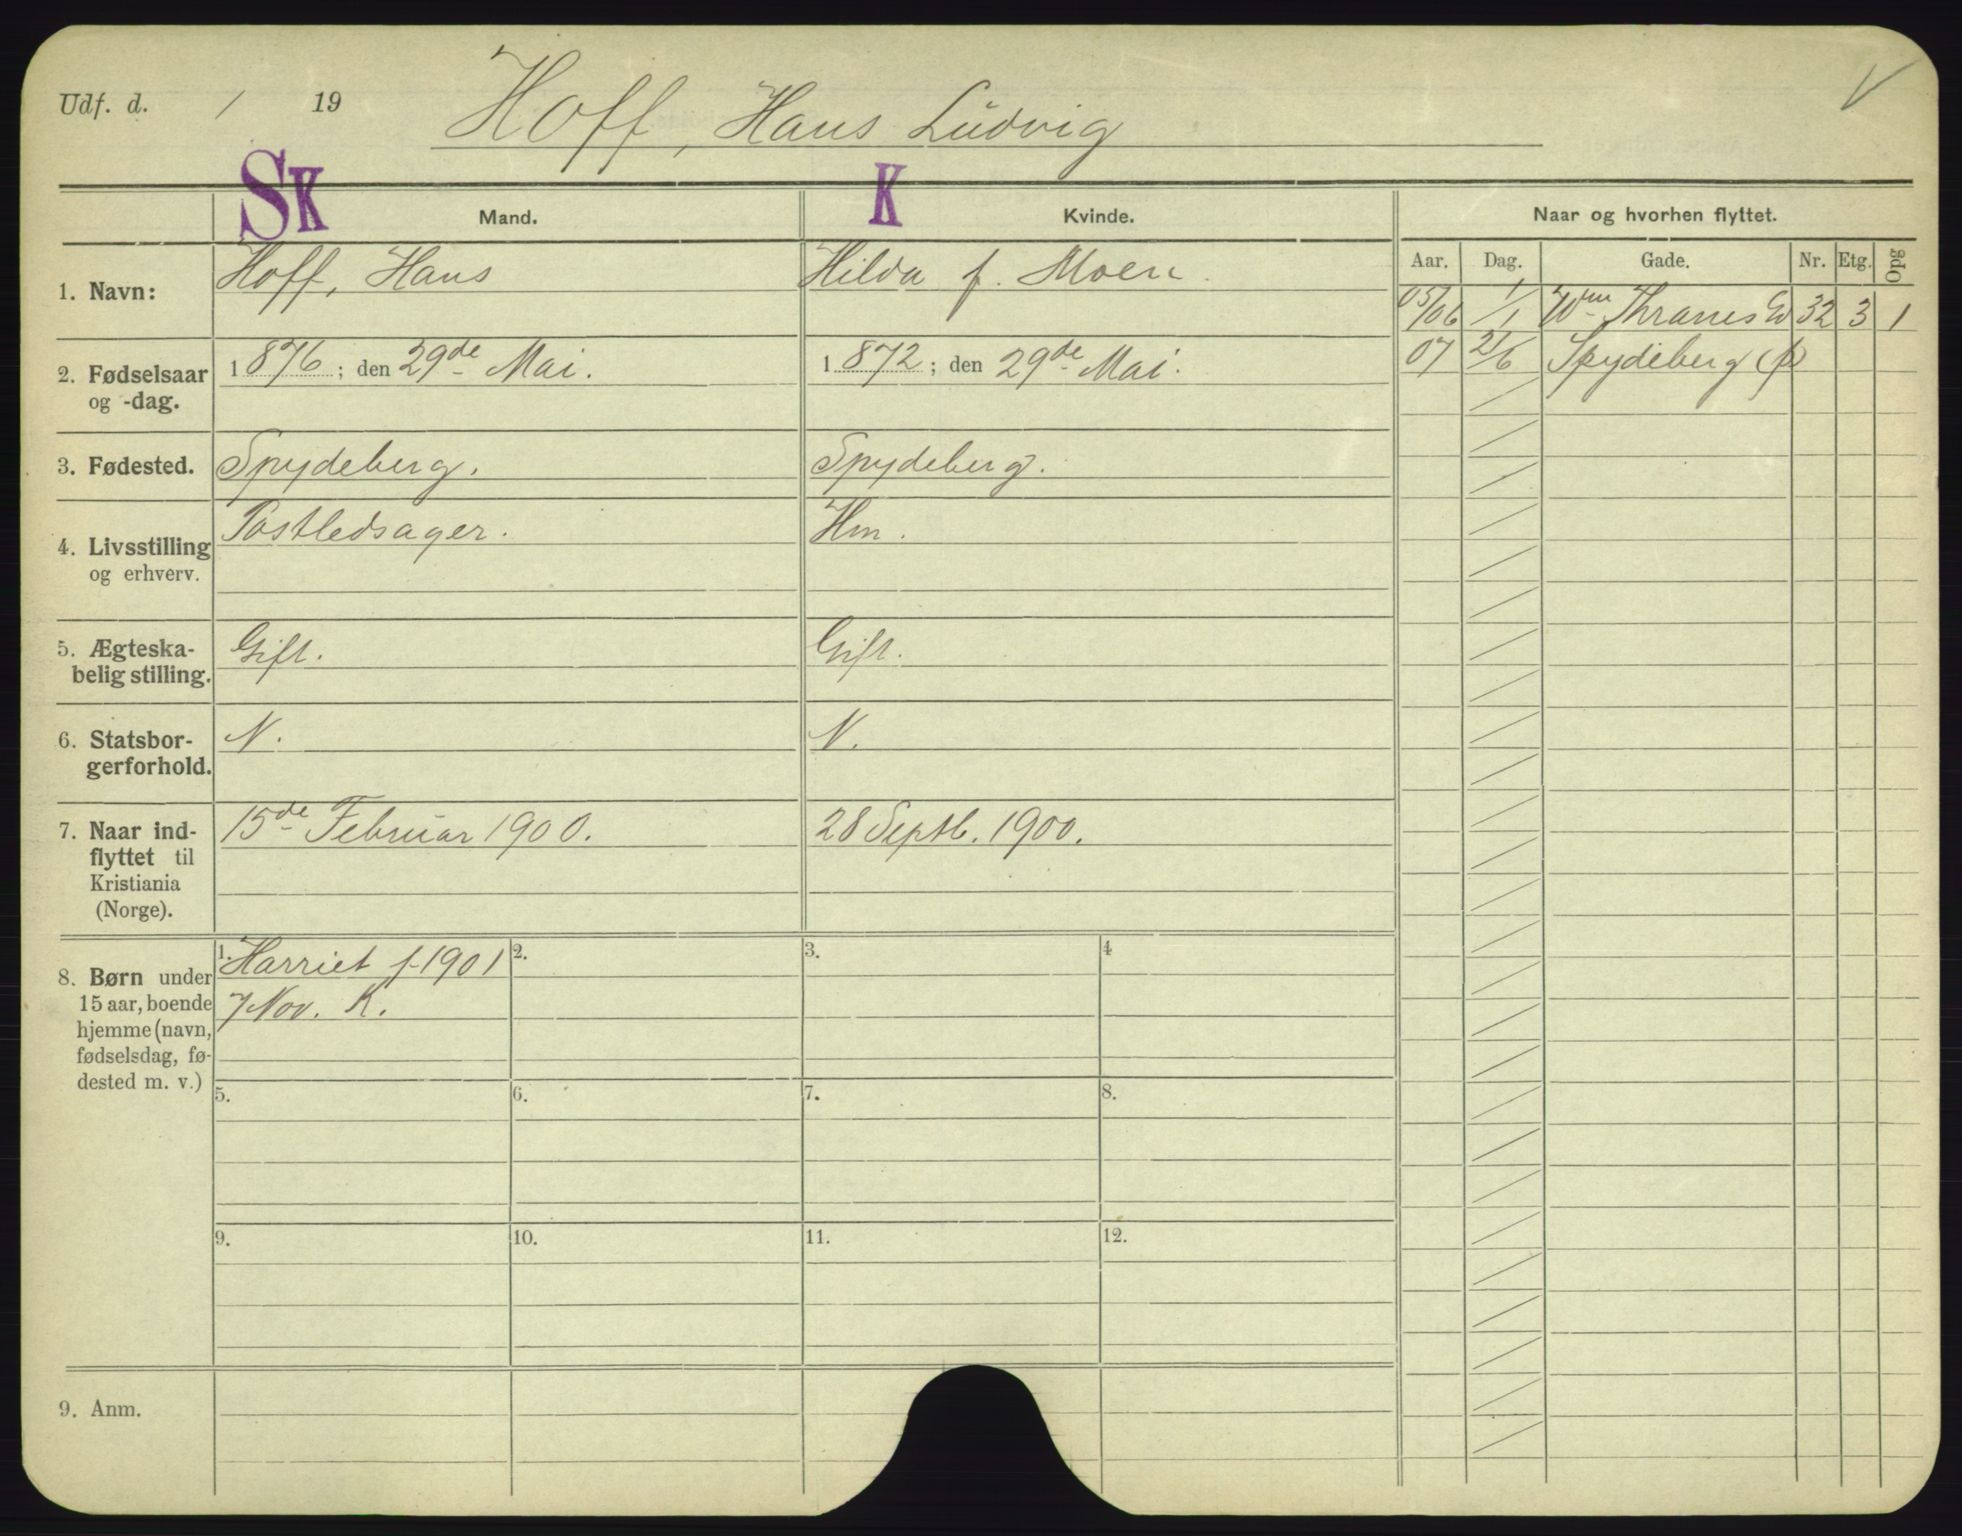 Udf. d. / 19 Hoff, Hans Ludvig
SK Mand. K Kvinde. Naar og hvorhen flyttet.
Aar. Dag. Gade. Nr. Etg. Opg
1. Navn: Hoff, Hans Hilda f. Moen.
05/06 1/1 Wm Thranes Gd 32 3 1
07 21/6 Spydeberg (p)
2. Fødselsaar 1876; den 29de Mai. 1872; den 29de Mai.
og -dag.
3. Fødested. Spydeberg. Spydeberg.
4. Livsstilling Postledsager. Hm.
og erhverv.
5. Ægteska- Gift. Gift.
belig stilling.
6. Statsbor- N. N.
gerforhold.
7. Naar ind- 15de Februar 1900. 28 Septb. 1900.
flyttet til
Kristiania
(Norge).
8. Børn under 1. Harriet f. 1901 2. 3. 4
15 aar, boende 7 Nov. K.
hjemme (navn,
fødselsdag, fø-
dested m. v.)
5. 6. 7. 8.
9. 10. 11. 12.
9. Anm.